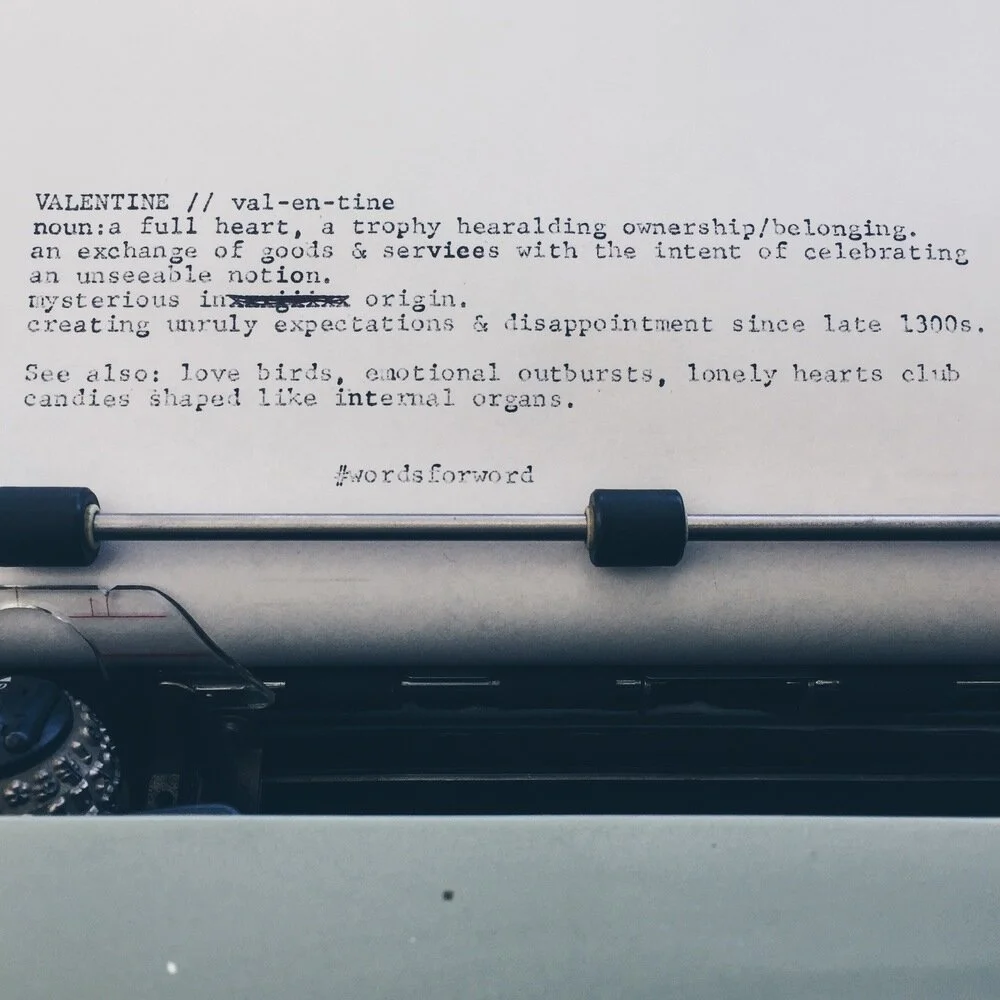 VALENTINE // val-en-tine
noun:a full heart, a trophy hearalding ownership/belonging.
an exchange of goods & services with the intent of celebrating
an unseeable notion.
mysterious in origin.
creating unruly expectations & disappointment since late 1300s.
See also: love birds, emotional outbursts, lonely hearts club
candies shaped like internal organs.
#wordsforword